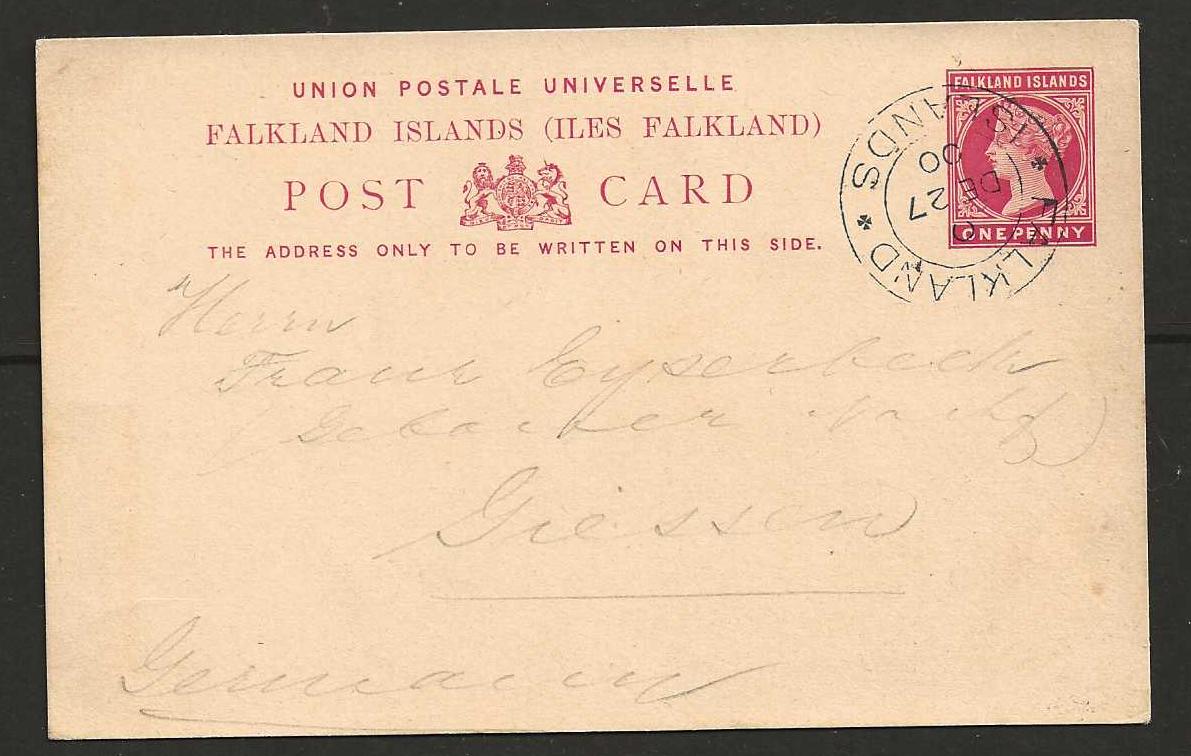 UNION POSTALE UNIVERSELLE
FALKLAND ISLANDS (ILES FALKLAND)
POST CARD
THE ADDRESS ONLY TO BE WRITTEN ON THIS SIDE.
FALKLAND ISLANDS
ONE PENNY
FALKLAND * ISLANDS *
C
DE 27
00
Herrn
Franz Eyserbeck
Giessen
Germany